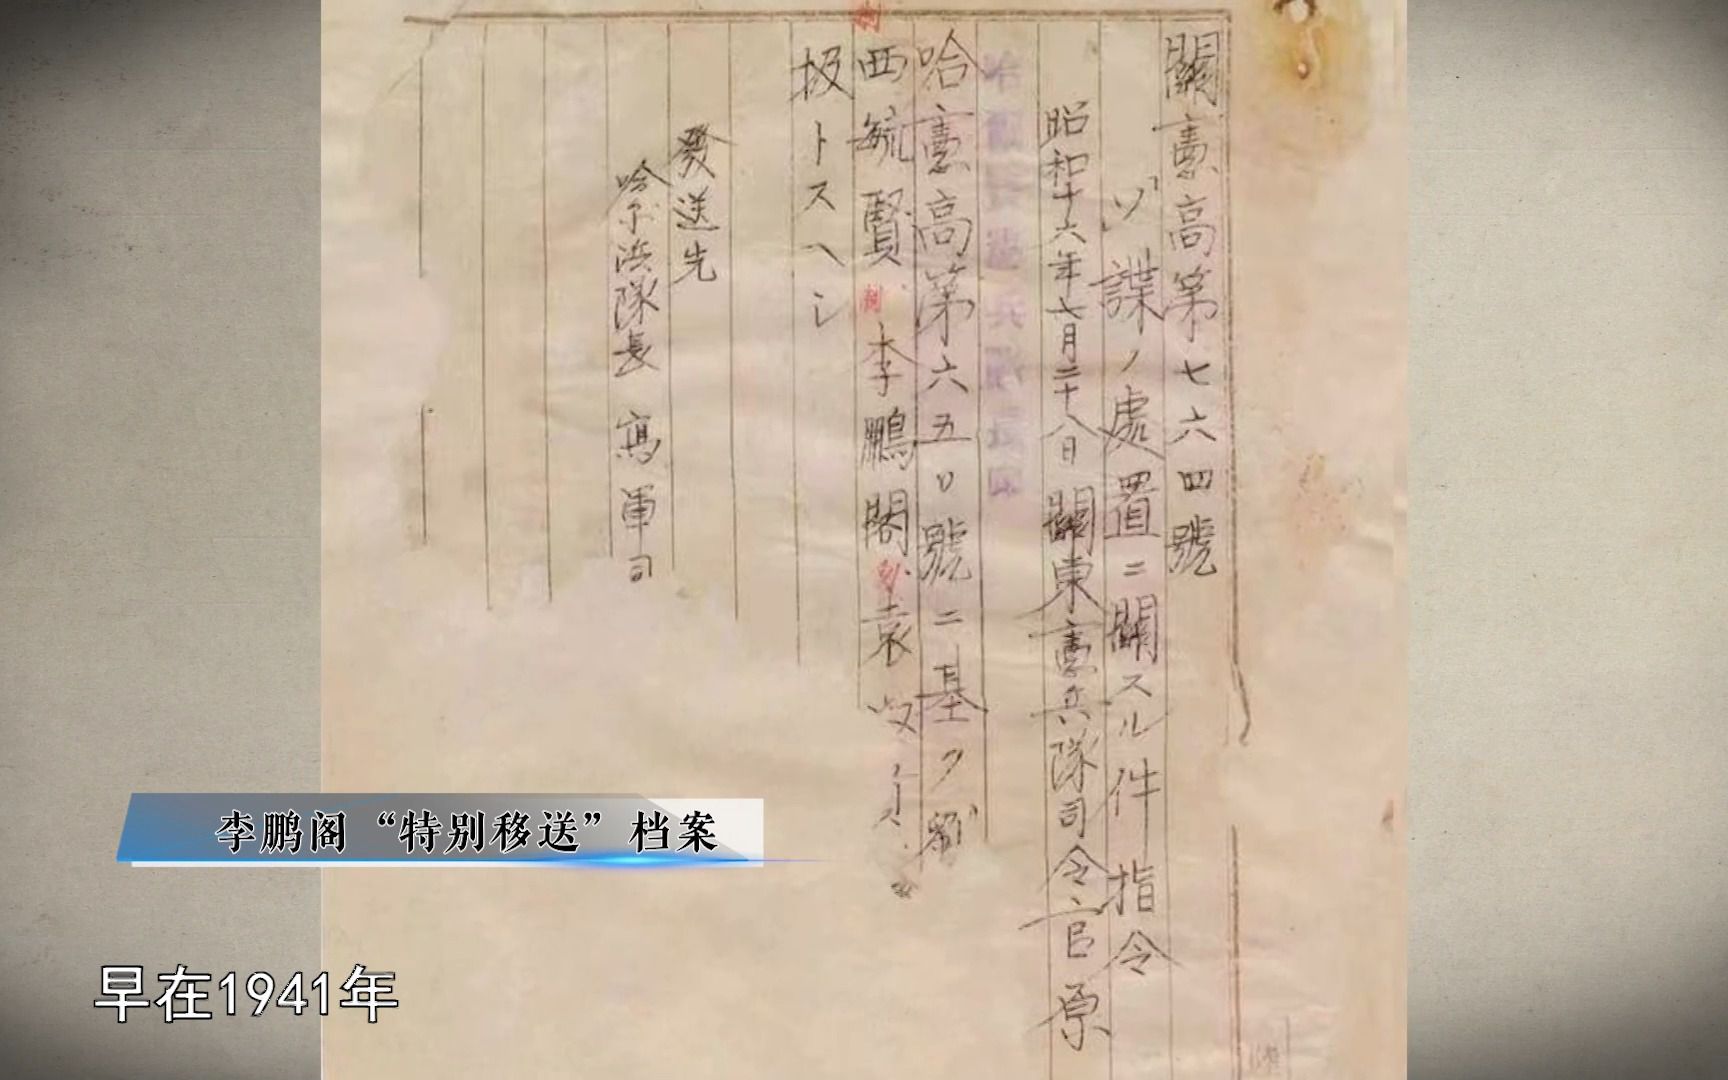 關憲高第七六四號
ソ諜ノ處置ニ關スル件指令
昭和十六年七月二十八日 關東憲兵隊司令官原
哈憲高第六五〇號ニ基ク
西毓賢 李鵬閣 袁
扱トスヘシ
發送先
哈尔浜隊長 寫 軍司
李鹏阁“特别移送”档案
早在1941年